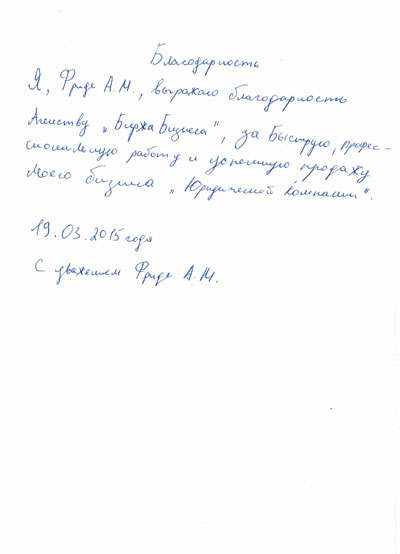 Благодарность
Я, Фриде А.М., выражаю благодарность
Агенству „Биржа Бизнеса", за Быструю, профес-
сиональную работу и успешную продажу
Моего бизнеса „Юридической Компании".
19.03.2015 года
С уважением Фриде А.М.